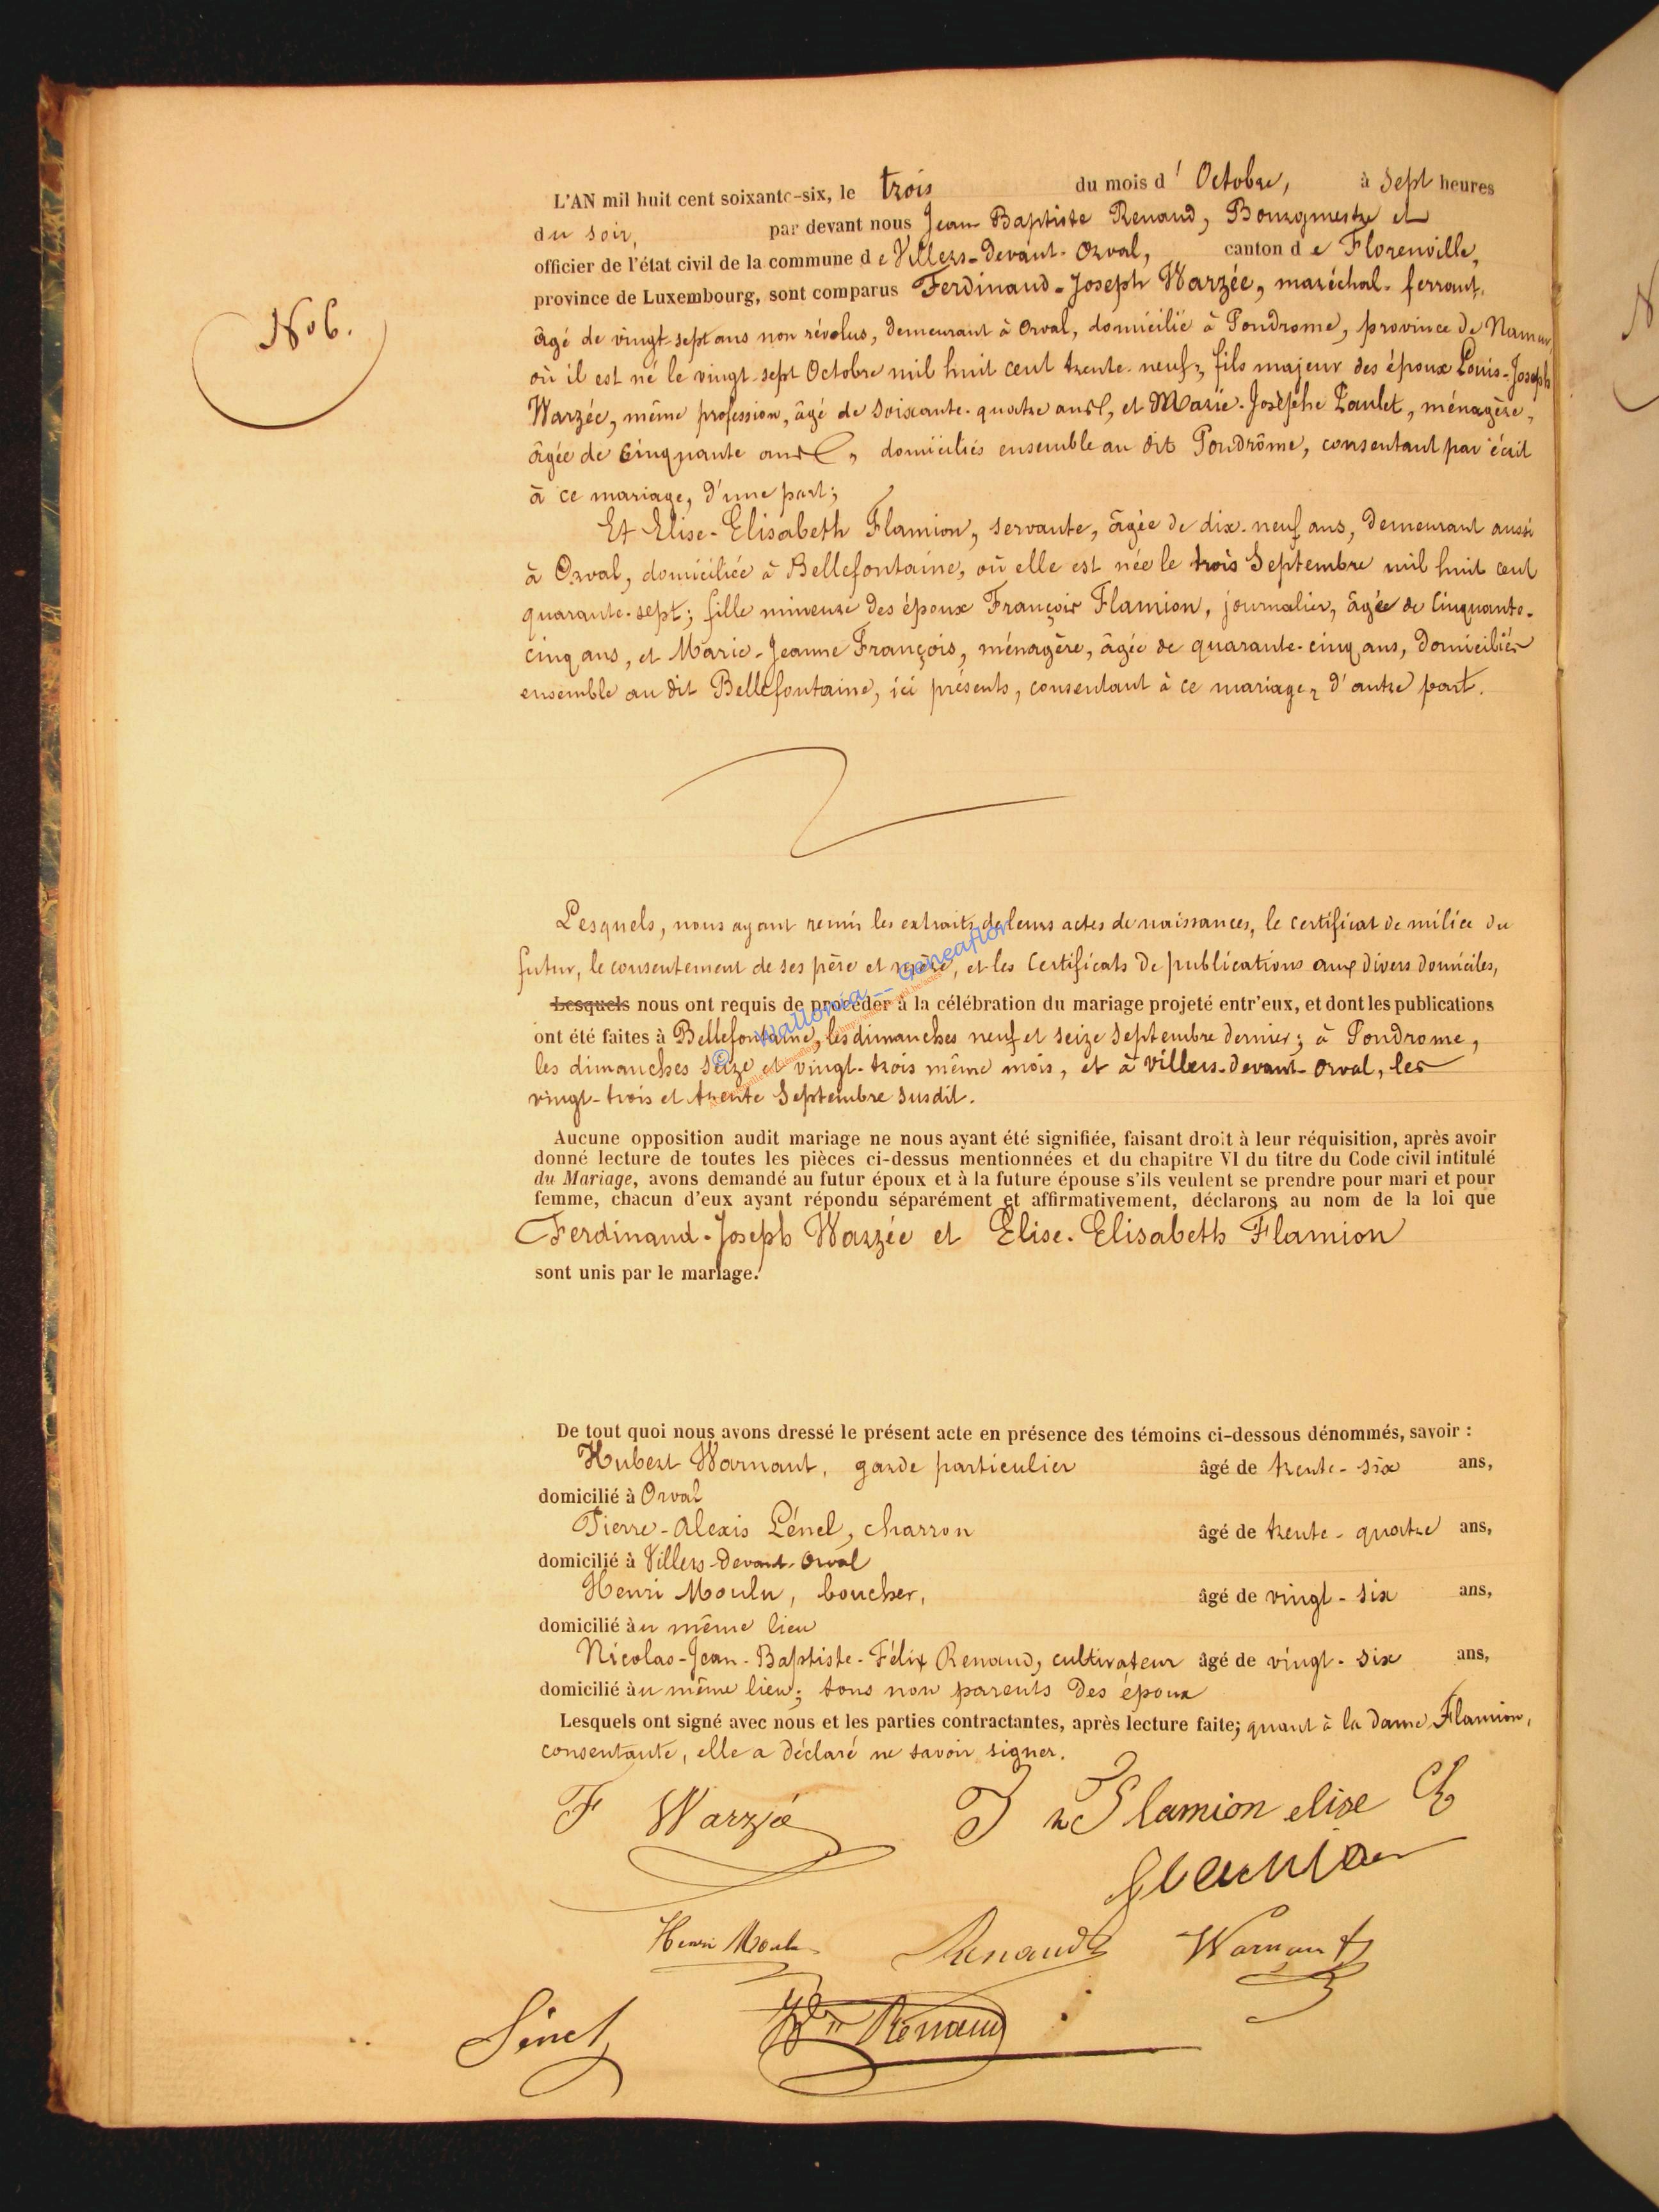 No 6.
L'AN mil huit cent soixante-six, le trois du mois d' Octobre, à sept heures
du soir, par devant nous Jean Baptiste Renaud, Bourgmestre et
officier de l'état civil de la commune de Villers-devant-Orval, canton de Florenville,
province de Luxembourg, sont comparus Ferdinand-Joseph Warzée, maréchal-ferrant,
âgé de vingt-sept ans non révolus, demeurant à Orval, domicilié à Pondrome, province de Namur,
où il est né le vingt-sept Octobre mil huit cent trente-neuf, fils majeur des époux Louis-Joseph
Warzée, même profession, âgé de soixante-quatre ans, et Marie-Josèphe Paulet, ménagère,
âgée de cinquante ans, domiciliés ensemble au dit Pondrôme, consentant par écrit
à ce mariage, d'une part;
Et Elise-Elisabeth Flamion, servante, âgée de dix-neuf ans, demeurant aussi
à Orval, domiciliée à Bellefontaine, où elle est née le trois Septembre mil huit cent
quarante-sept; fille mineure des époux François Flamion, journalier, âgée de cinquante-
cinq ans, et Marie-Jeanne François, ménagère, âgée de quarante-cinq ans, domiciliés
ensemble au dit Bellefontaine, ici présents, consentant à ce mariage, d'autre part.
Lesquels, nous ayant remis les extraits de leurs actes de naissances, le certificat de milice du
futur, le consentement de ses père et mère, et les certificats de publications aux divers domiciles,
Lesquels nous ont requis de procéder à la célébration du mariage projeté entr'eux, et dont les publications
ont été faites à Bellefontaine, les dimanches neuf et seize Septembre dernier; à Pondrome,
les dimanches seize et vingt-trois même mois, et à Villers-devant-Orval, les
vingt-trois et trente Septembre susdit.
© Wallonia -- Geneaflor
Aucune opposition audit mariage ne nous ayant été signifiée, faisant droit à leur réquisition, après avoir
donné lecture de toutes les pièces ci-dessus mentionnées et du chapitre VI du titre du Code civil intitulé
du Mariage, avons demandé au futur époux et à la future épouse s'ils veulent se prendre pour mari et pour
femme, chacun d'eux ayant répondu séparément et affirmativement, déclarons au nom de la loi que
Ferdinand-Joseph Warzée et Elise-Elisabeth Flamion
sont unis par le mariage.
De tout quoi nous avons dressé le présent acte en présence des témoins ci-dessous dénommés, savoir :
Hubert Warnant, garde particulier âgé de trente-six ans,
domicilié à Orval
Pierre-Alexis Lénel, charron âgé de trente-quatre ans,
domicilié à Villers-devant-Orval
Henri Moulu, boucher, âgé de vingt-six ans,
domicilié au même lieu
Nicolas-Jean-Baptiste-Félix Renaud, cultivateur âgé de vingt-six ans,
domicilié au même lieu; tous non parents des époux
Lesquels ont signé avec nous et les parties contractantes, après lecture faite; quant à la dame Flamion,
consentante, elle a déclaré ne savoir signer.
F Warzée Flamion elise
flamion
Henri Moulu Renaud Warnant
Lénel Renaud